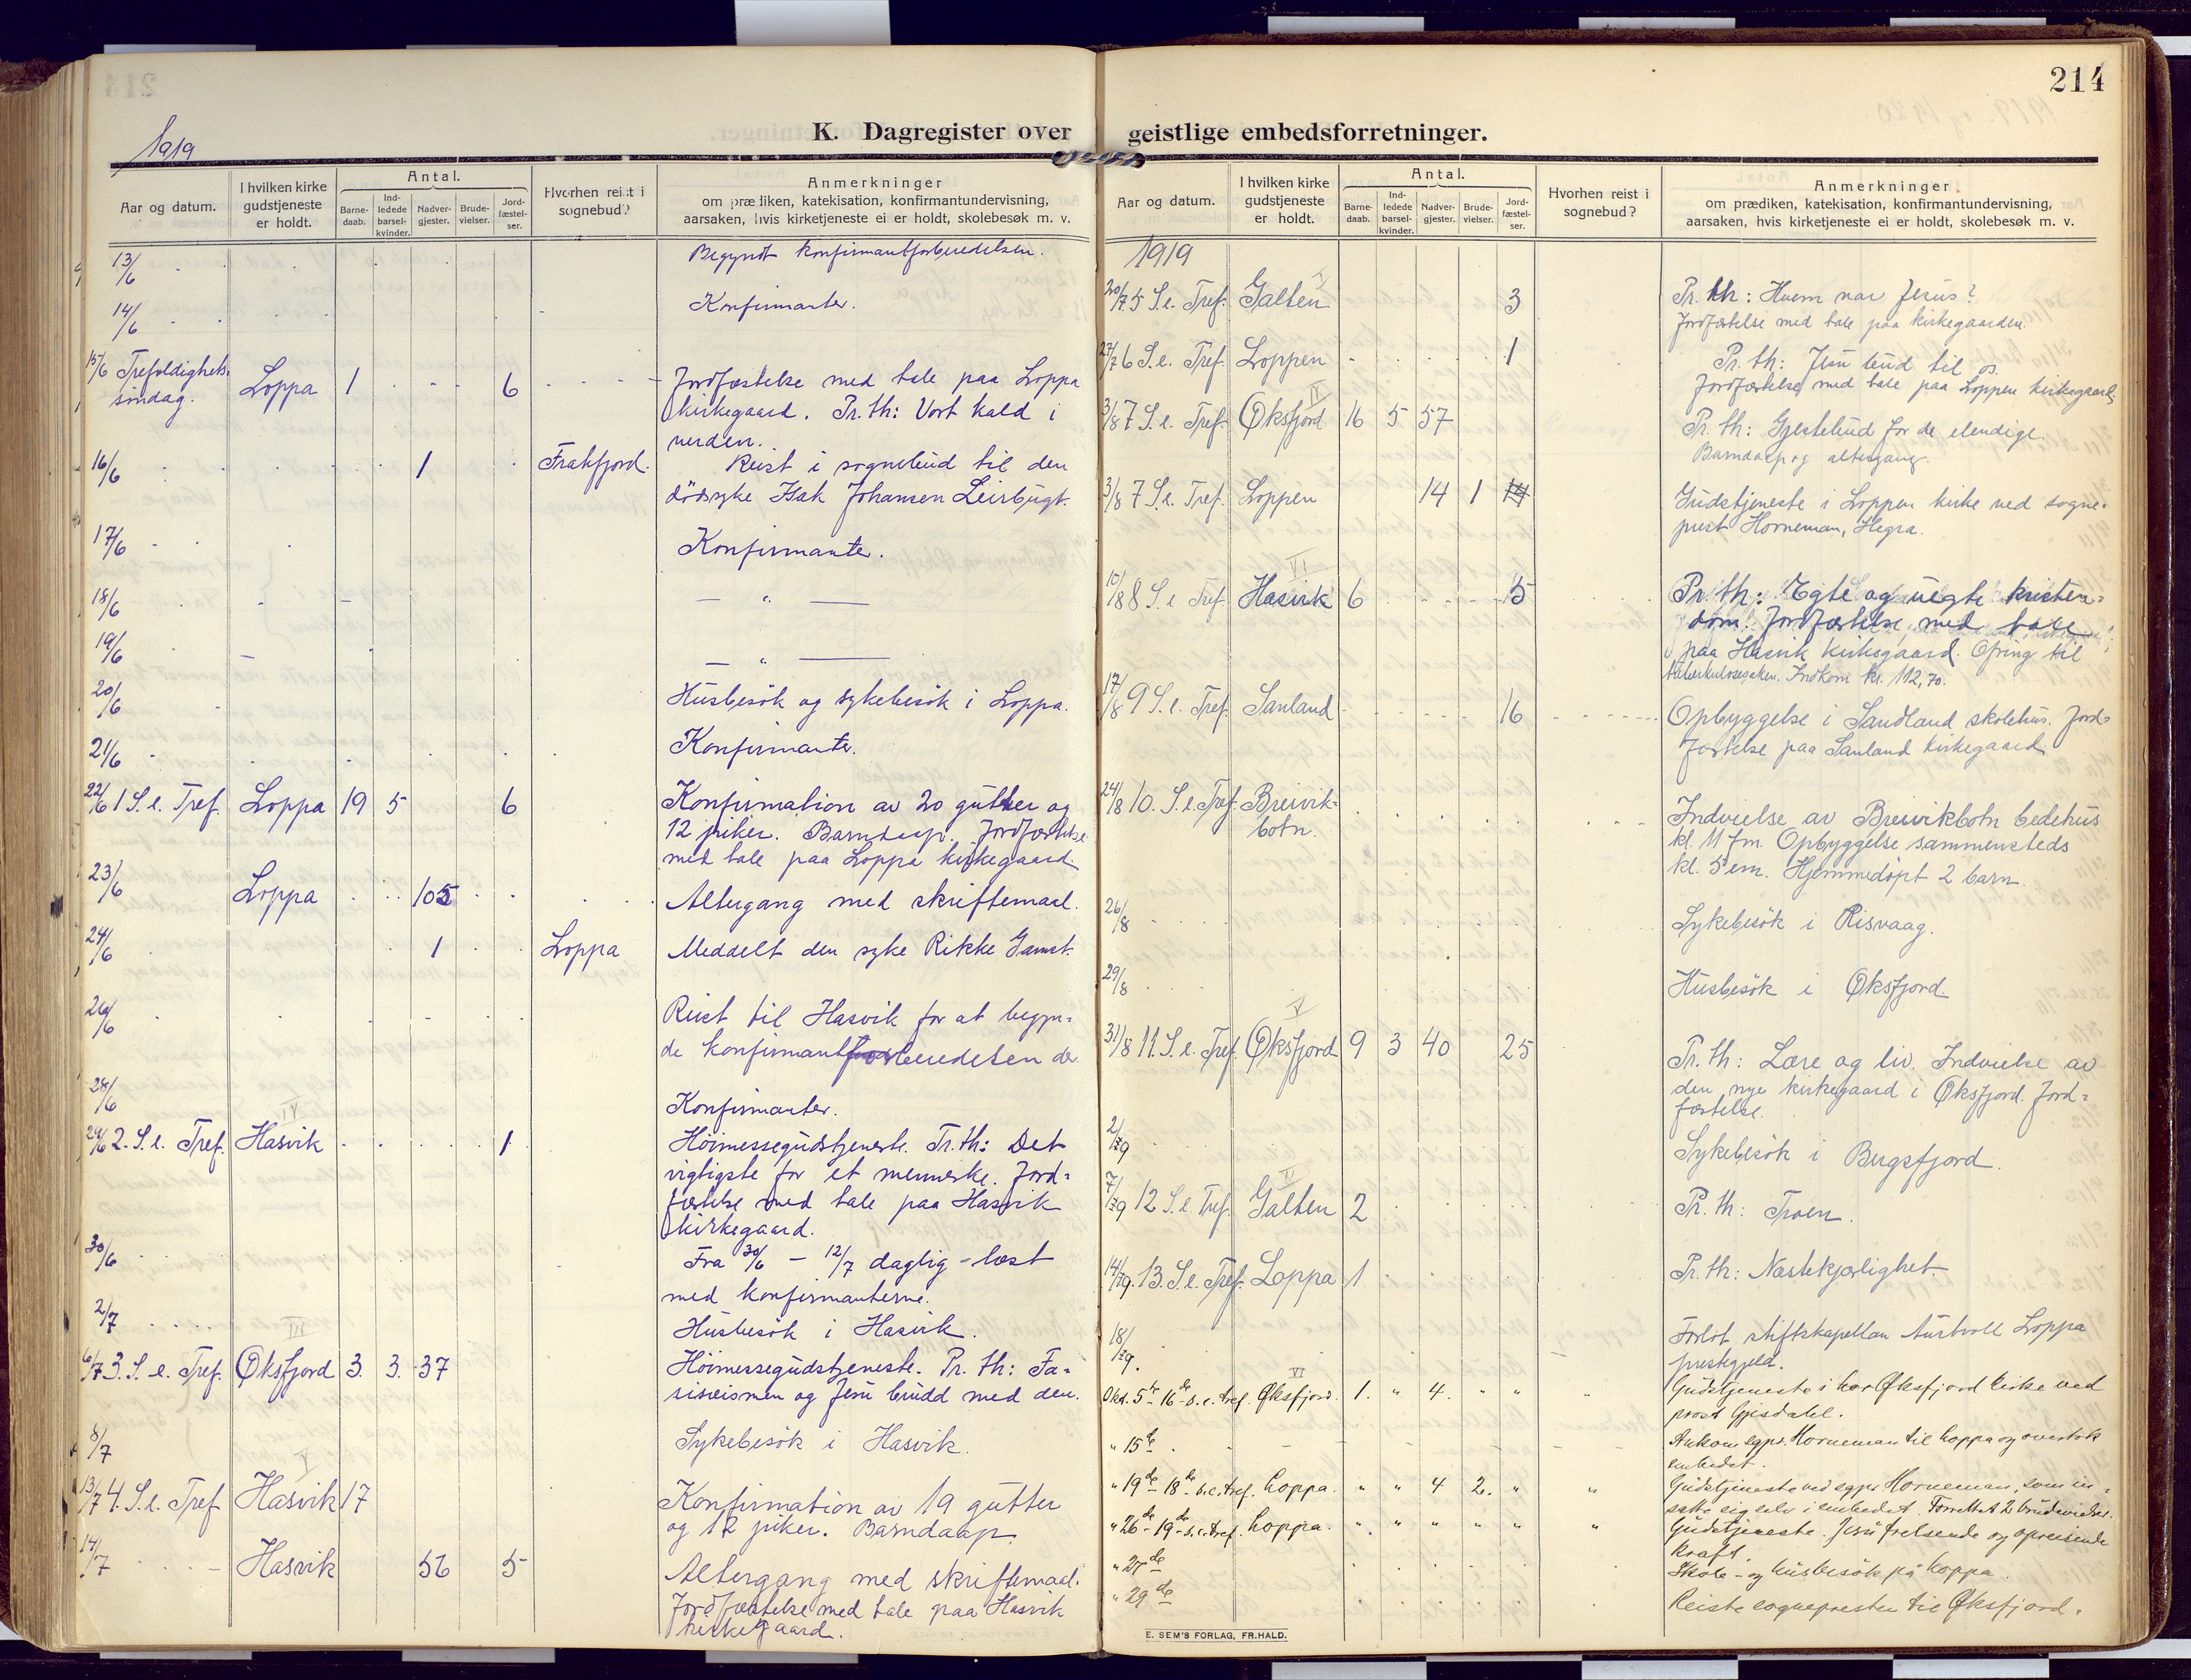 214
K. Dagregister over geistlige embedsforretninger.
1919
Aar og datum.
I hvilken kirke gudstjeneste er holdt.
Antal.
Barne-daab.
Ind-ledede barsel-kvinder.
Nadver-gjester.
Brude-vielser.
Jord-fæstel-ser.
Hvorhen reist i sognebud?
Anmerkninger
om prædiken, katekisation, konfirmantundervisning,
aarsaken, hvis kirketjeneste ei er holdt, skolebesøk m. v.
13/6 Begyndt konfirmantforberedelsen.
14/6 Konfirmanter.
15/6 Trefoldighets- Loppa 1 6 Jordfæstelse med tale paa Loppa
søndag. kirkegaard. Pr. th: Vort kald i
verden.
16/6 1 Frakfjord. Reist i sognebud til den
dødsyke Isak Johansen Leirbugt.
17/6 Konfirmanter.
18/6 — " —
19/6 — " —
20/6 Husbesøk og sykebesøk i Loppa.
21/6 Konfirmanter.
22/6 1 S. e. Tref. Loppa 19 5 6 Konfirmation av 20 gutter og
12 piker. Barndaap. Jordfæstelse
med tale paa Loppa kirkegaard.
23/6 Loppa 105 Altergang med skriftemaal.
24/6 1 Loppa Meddelt den syke Rikke Gamst.
26/6 Reist til Hasvik for at begyn-
de konfirmantforberedelsen der
28/6 Konfirmanter.
IV
29/6 2. S. e. Tref. Hasvik 1 Høimessegudstjeneste. Pr. th: Det
vigtigste for et menneske. Jord-
fæstelse med tale paa Hasvik
kirkegaard.
30/6 Fra 30/6 – 12/7 daglig læst
med konfirmanterne.
2/7 Husbesøk i Hasvik.
III
6/7 3. S. e. Tref. Øksfjord 3. 3. 37 Høimessegudstjeneste. Pr. th: Fa-
risæismen og Jesu brudd med den.
8/7 Sykebesøk i Hasvik.
V
13/7 4. S. e. Tref Hasvik 17 Konfirmation av 19 gutter
og 12 piker. Barndaap.
14/7 Hasvik 56 5 Altergang med skriftemaal.
Jordfæstelse med tale paa Hasvik
kirkegaard.
Aar og datum.
I hvilken kirke gudstjeneste er holdt.
Antal.
Barne-daab.
Ind-ledede barsel-kvinder.
Nadver-gjester.
Brude-vielser.
Jord-fæstel-ser.
Hvorhen reist i sognebud?
Anmerkninger
om prædiken, katekisation, konfirmantundervisning,
aarsaken, hvis kirketjeneste ei er holdt, skolebesøk m. v.
1919
I
20/7 5 S. e. Tref. Galten 3 Pr. th: Hvem var Jesus?
Jordfæstelse med tale paa kirkegaarden.
27/7 6 S. e. Tref. Loppen 1 Pr. th: Jesu bud til os.
Jordfæstelse med tale paa Loppen kirkegaard.
IV
3/8 7 S. e. Tref. Øksfjord 16 5 57 Pr. th: Gjestebud for de elendige.
Barndaap og altergang.
3/8 7 S. e. Tref. Loppen 14 1 Gudstjeneste i Loppen kirke ved sogne-
prest Horneman, Hegra.
VI
10/8 8 S. e. Tref. Hasvik 6 5 Pr. th: Egte og uegte kristen-
dom. Jordfæstelse med tale
paa Hasvik kirkegaard. Ofring til
tuberkulosesaken. Indkom kr. 112,70.
17/8 9 S. e. Tref. Sanland 16 Opbyggelse i Sandland skolehus. Jord-
fæstelse paa Sanland kirkegaard.
24/8 10. S. e. Tref. Breivik- Indvielse av Breivikbotn bedehus
botn. kl. 11 fm. Opbyggelse sammensteds
kl. 5 em. Hjemmedøpt 2 barn.
26/8 Sykebesøk i Risvaag.
29/8 Husbesøk i Øksfjord.
V
31/8 11. S. e. Tref. Øksfjord 9 3 40 25 Pr. th: Lære og liv. Indvielse av
den nye kirkegaard i Øksfjord. Jord-
fæstelse.
2/9 Sykebesøk i Bugsfjord.
II
7/9 12 S. e. Tref. Galten 2 Pr. th: Troen.
14/9. 13. S. e. Tref. Loppa 1 Pr. th: Næstekjærlighet.
18/9. Forlot stiftskapellan Loppa
prestegjeld.
VI
Okt. 5te 16de s. e. tref. Øksfjord. 1. " 4. " " " Gudstjeneste i Øksfjord kirke ved
prost Gjesdahl.
" 15de Ankom sgpr. Horneman til Loppa og overtok
embedet.
" 19de 18de s. e. tref. Loppa. " " 4 2. " " Gudstjeneste ved sgpr. Horneman, som ind-
satte sig selv i embedet. Forrettet 2 brudevielser.
" 26de 19de s. e. tref. Loppa. " " " " " " Gudstjeneste. Jesu frelsende og opreisende
kraft.
" 27de Skole- og husbesøk på Loppa.
" 29de Reiste sognepresten til Øksfjord.
E. SEM'S FORLAG, FR.HALD.